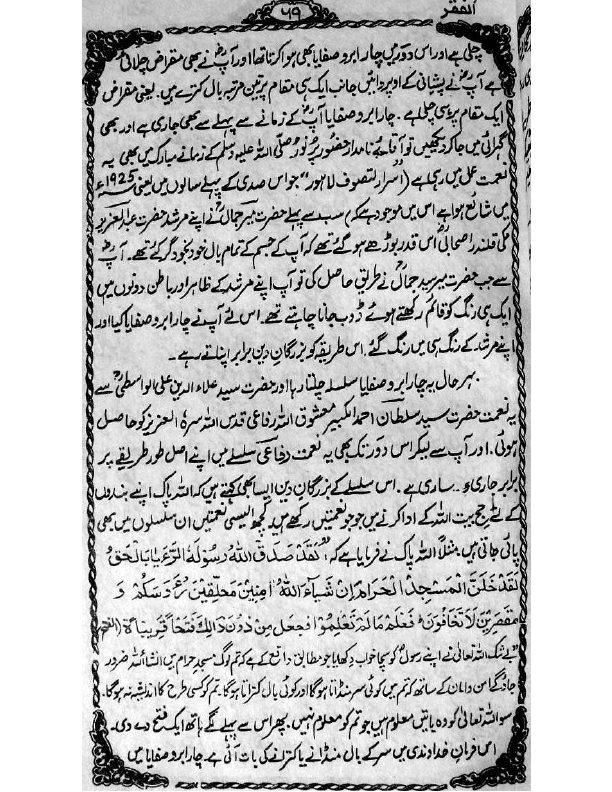 الفقر
۶۹
چلی ہے اور اس دور میں چار ابرو صفایا بھی ہوا کرتا تھا اور آپؓ نے بھی مقراض چلائی
ہے آپؓ نے پیشانی کے اوپر دائیں جانب ایک ہی مقام پر تین مرتبہ بال کترے ہیں۔ یعنی مقراض
ایک مقام پر ہی چلی ہے۔ چار ابرو صفایا آپؓ کے زمانے سے پہلے سے بھی جاری ہے اور بھی
گہرائی میں جا کر دیکھیں تو آقائے نامدار حضور پر نور صلی اللہ علیہ وسلم کے زمانے مبارک میں بھی یہ
نعمت عمل میں رہی ہے (اسرار التصوف لاہور" جو اس صدی کے پہلے سالوں میں یعنی 1925ء
میں شائع ہوا ہے اس میں موجود ہے کہ) سب سے پہلے حضرت میر جمالؒ نے اپنے مرشد حضرت عبدالعزیز
مکی قلندر اصحابیؓ اس قدر بوڑھے ہو گئے تھے کہ آپ کے جسم کے تمام بال خود بخود گر گئے تھے۔ آپؓ
سے جب حضرت میر سید جمالؒ نے طریق حاصل کی تو آپ اپنے مرشد کے ظاہر اور باطن دونوں میں
ایک ہی رنگ کو قائم رکھتے ہوئے ڈوب جانا چاہتے تھے۔ اس لئے آپ نے چار ابرو صفایا کیا اور
اپنے مرشد کے رنگ ہی میں رنگ گئے۔ اس طریقہ کو بزرگان دین برابر اپناتے رہے۔
بہر حال یہ چار ابرو صفایا سلسلہ چلتا رہا اور حضرت سید علاء الدین علی الواسطیؒ سے
یہ نعمت حضرت سید سلطان احمد الکبیر معشوق اللہ رفاعی قدس اللہ سرہ العزیز کو حاصل
ہوئی۔ اور آپ سے لیکر اس دور تک بھی یہ نعمت رفاعی سلسلے میں اپنے اصل طور طریقے پر
برابر جاری و ساری ہے۔ اس سلسلے کے بزرگان دین ایسا بھی کہتے ہیں کہ اللہ پاک اپنے بندوں
کے لئے حج بیت اللہ کے ادا کرنے میں جو جو نعمتیں رکھے ہیں کچھ ایسی نعمتیں ان سلسلوں میں بھی
پائی جاتی ہیں۔ مثلاً اللہ پاک نے فرمایا ہے کہ: "لَقَدْ صَدَقَ اللّٰهُ رَسُولَهُ الرُّءْيَا بِالْحَقِّ
لَقَدْ خَلَنَّ الْمَسْجِدَ الْحَرَامَ اِنْ شَآءَ اللّٰهُ اٰمِنِيْنَ مُحَلِّقِيْنَ رُءُوْسَكُمْ وَ
مُقَصِّرِيْنَ لَا تَخَافُوْنَ فَعَلِمَ مَا لَمْ تَعْلَمُوْا فَجَعَلَ مِنْ دُوْنِ ذَالِكَ فَتْحًا قَرِيْبًا ۃ (الفتح)
"بے شک اللہ تعالیٰ نے اپنے رسولؐ کو سچا خواب دکھایا جو مطابق واقع کے ہے کہ تم لوگ مسجد حرام میں انشاء اللہ ضرور
جاؤ گے امن و امان کے ساتھ کہ تم میں کوئی سر منڈاتا ہوگا اور کوئی بال کتراتا ہوگا۔ تم کو کسی طرح کا اندیشہ نہ ہوگا۔
سو اللہ تعالیٰ کو وہ باتیں معلوم ہیں جو تم کو معلوم نہیں۔ پھر اس سے پہلے لگے ہاتھ ایک فتح دے دی۔
اس فرمان خداوندی میں سر کے بال منڈانے یا کترانے کی بات آئی ہے۔ چار ابرو صفایا میں